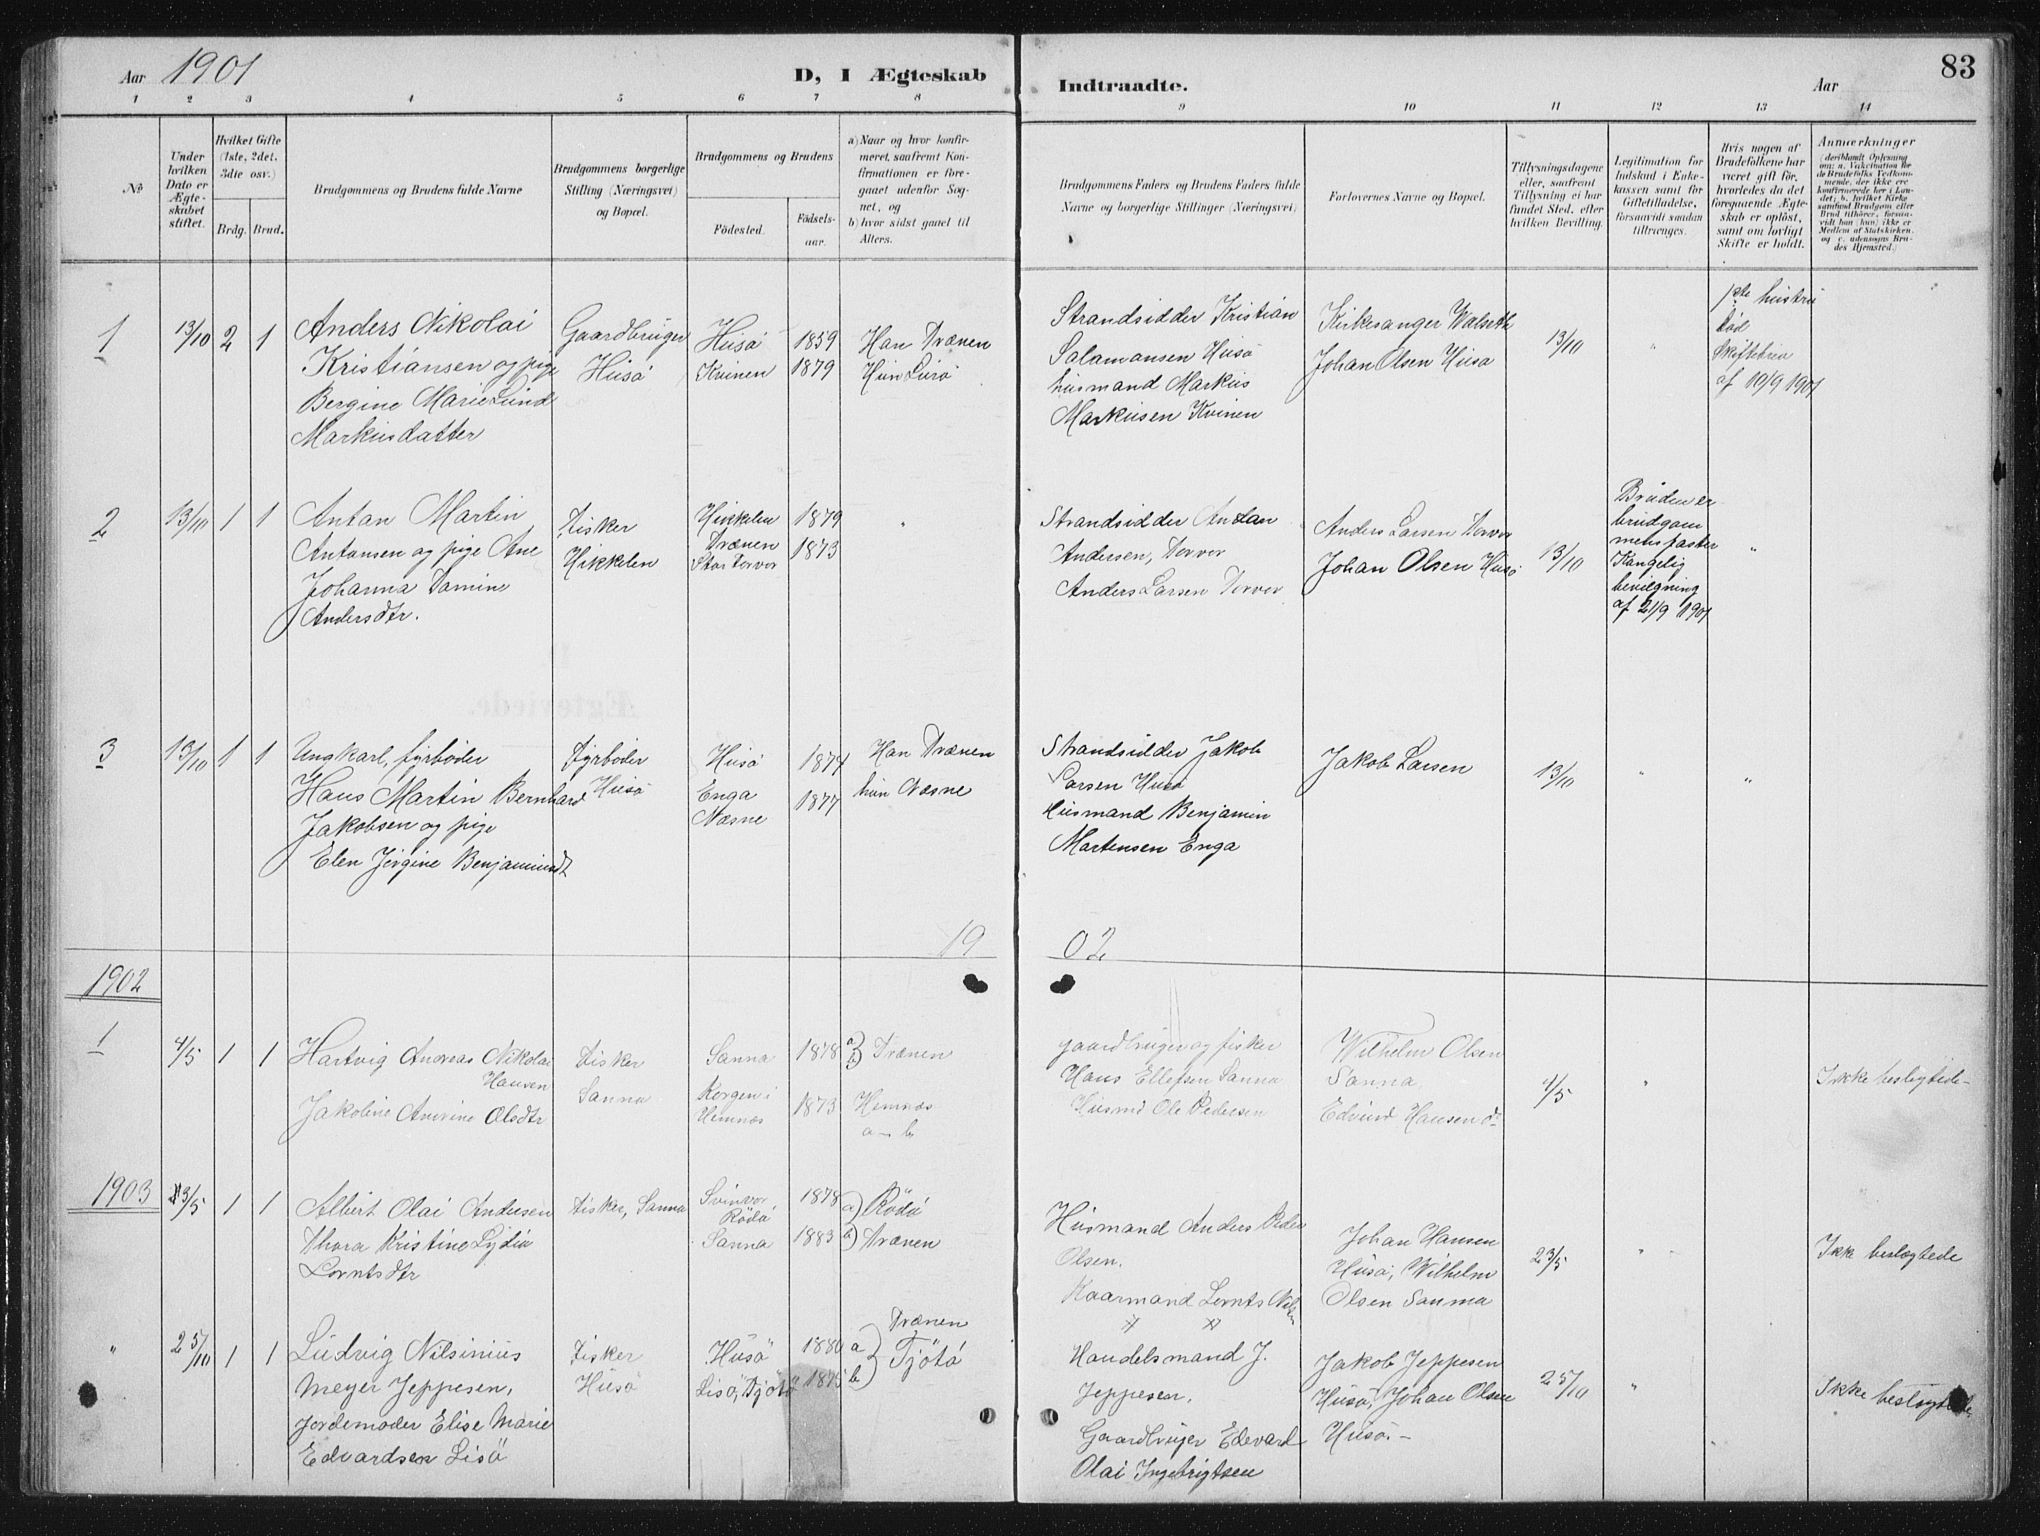 Aar 1901
D, I Ægteskab
Indtraadte.
Aar
83
1 2 3 4 5 6 7 8 9 10 11 12 13 14
No
Under hvilken Dato er Ægteskabet stiftet.
Hvilket Gifte (1ste, 2det, 3die osv.)
Brdg. Brud.
Brudgommens og Brudens fulde Navne
Brudgommens borgerlige Stilling (Næringsvei) og Bopæl.
Brudgommens og Brudens
Fødested.
Fødselsaar.
a) Naar og hvor konfirmeret, saafremt Konfirmationen er foregaaet udenfor Sognet, og
b) hvor sidst gaaet til Alters.
Brudgommens Faders og Brudens Faders fulde Navne og borgerlige Stillinger (Næringsvei)
Forlovernes Navne og Bopæl.
Tillysningsdagene eller, saafremt Tillysning ei har fundet Sted, efter hvilken Bevilling.
Legitimation for Indskud i Enkekassen samt for Giftetilladelse, forsaavidt saadan tiltrænges.
Hvis nogen af Brudefolkene har været gift før, hvorledes da det foregaaende Ægteskab er opløst, samt om lovligt Skifte er holdt.
Anmærkninger
(deriblandt Oplysning om: a. Vakcination for de Brudefolks Vedkommende, der ikke ere konfirmerede her i Landet; b. hvilket Kirkesamfund Brudgom eller Brud tilhører, forsaavidt han (hun) ikke er Medlem af Statskirken, og c. udensogns Brudes Hjemsted.)
1 13/10 2 1
Anders Nikolai
Kristiansen og pige
Bergine Marie Lund
Markusdatter
Gaardbruger
Husö
Husö 1859
Kvinen 1879
Han Trænen
Hun Lurö
Strandsidder Kristian
Salamansen Husö
husmand Markus
Markusen Kvinen
Kirkesanger Walseth
Johan Olsen Husö
13/10
"
1ste hustru
död
Skiftebrev
af 10/9 1901
2 13/10 1 1
Antan Martin
Antonsen og pige Ane
Johanna Tamine
Andersdtr.
Fisker
Hikkelen
Hikkelen 1879
Trænen
Stor Torvær 1873
"
Strandsidder Antan
Andersen, Torvær
Anders Larsen Torvær
Anders Larsen Torvær
Johan Olsen Husö
13/10
Bruden er
brudgom
mens faster
Kongelig
bevilgning
af 21/9 1901
"
3 13/10 1 1
Ungkarl, fyrböder
Hans Martin Bernhard
Jakobsen og pige
Elen Jörgine Benjaminsdt
Fyrböder
Husö
Husö 1874
Enga 1877
Næsne
Han Trænen
hun Næsne
Strandsidder Jakob
Larsen Husö
Husmand Benjamin
Martensen Enga
Jakob Larsen
13/10
"
"
1902
1902
1 4/5 1 1
Hartvig Andreas Nikolai
Hansen
Jakoline Olsdtr
Fisker
Sanna
Sanna 1878
Korgen i
Hemnæs 1873
a b) Trænen
Hemnæs
a - b
gaardbruger og fisker
Hans Ellefsen Sanna
Husmd Ole Pedersen
Wilhelm Olsen
Sanna
Edvind Hansen do
4/5
"
Ikke beslegtede
1903 23/5 1 1
Albert Olai Andersen
Thora Kristine Lydia
Lorntsdtr
Fisker, Sanna
Svinvær
Rödö 1878
Sanna 1883
a) Rödö
b) Trænen
Husmand Anders Peder
Olsen.
Kaarmand Lornts Nilsen
Johan Hansen
Husö, Wilhelm
Olsen Sanna
23/5
"
Ikke beslægtede
" 25/10 1 1
Ludvig Nilsinius
Meyer Jeppesen,
Jordemoder Elise Marie
Edvardsen Lisö
Fisker
Husö
Husö 1880
Lisö, Tjötö 1875
Trænen
a b) Tjötö
Handelsmand J.
Jeppesen.
Gaardbruger Edevard
Olai Ingebrigtsen
Jakob Jeppesen
Husö, Johan Olsen
Husö. -
25/10
"
Ikke beslegtede